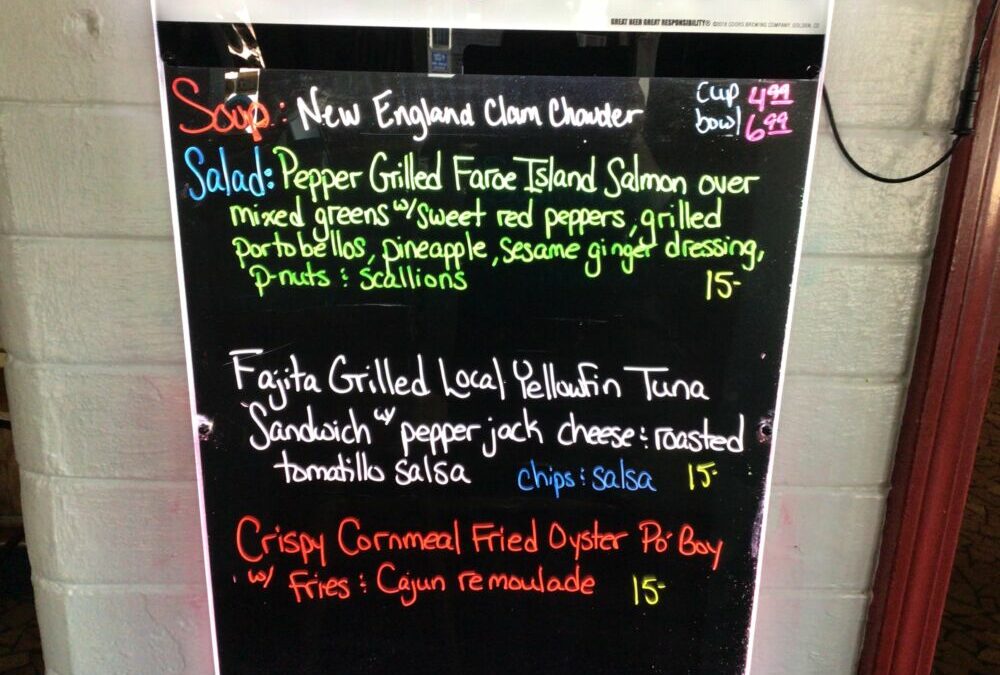 GREAT BEER GREAT RESPONSIBILITY® ©2016 COORS BREWING COMPANY, GOLDEN, CO
Soup: New England Clam Chowder cup 4.99
bowl 6.99
Salad: Pepper Grilled Faroe Island Salmon over
mixed greens w/ sweet red peppers, grilled
portobellos, pineapple, sesame ginger dressing,
p-nuts & scallions 15-
Fajita Grilled Local Yellowfin Tuna
Sandwich w/ pepper jack cheese & roasted
tomatillo salsa chips & salsa 15-
Crispy Cornmeal Fried Oyster Po' Boy
w/ fries & Cajun remoulade 15-